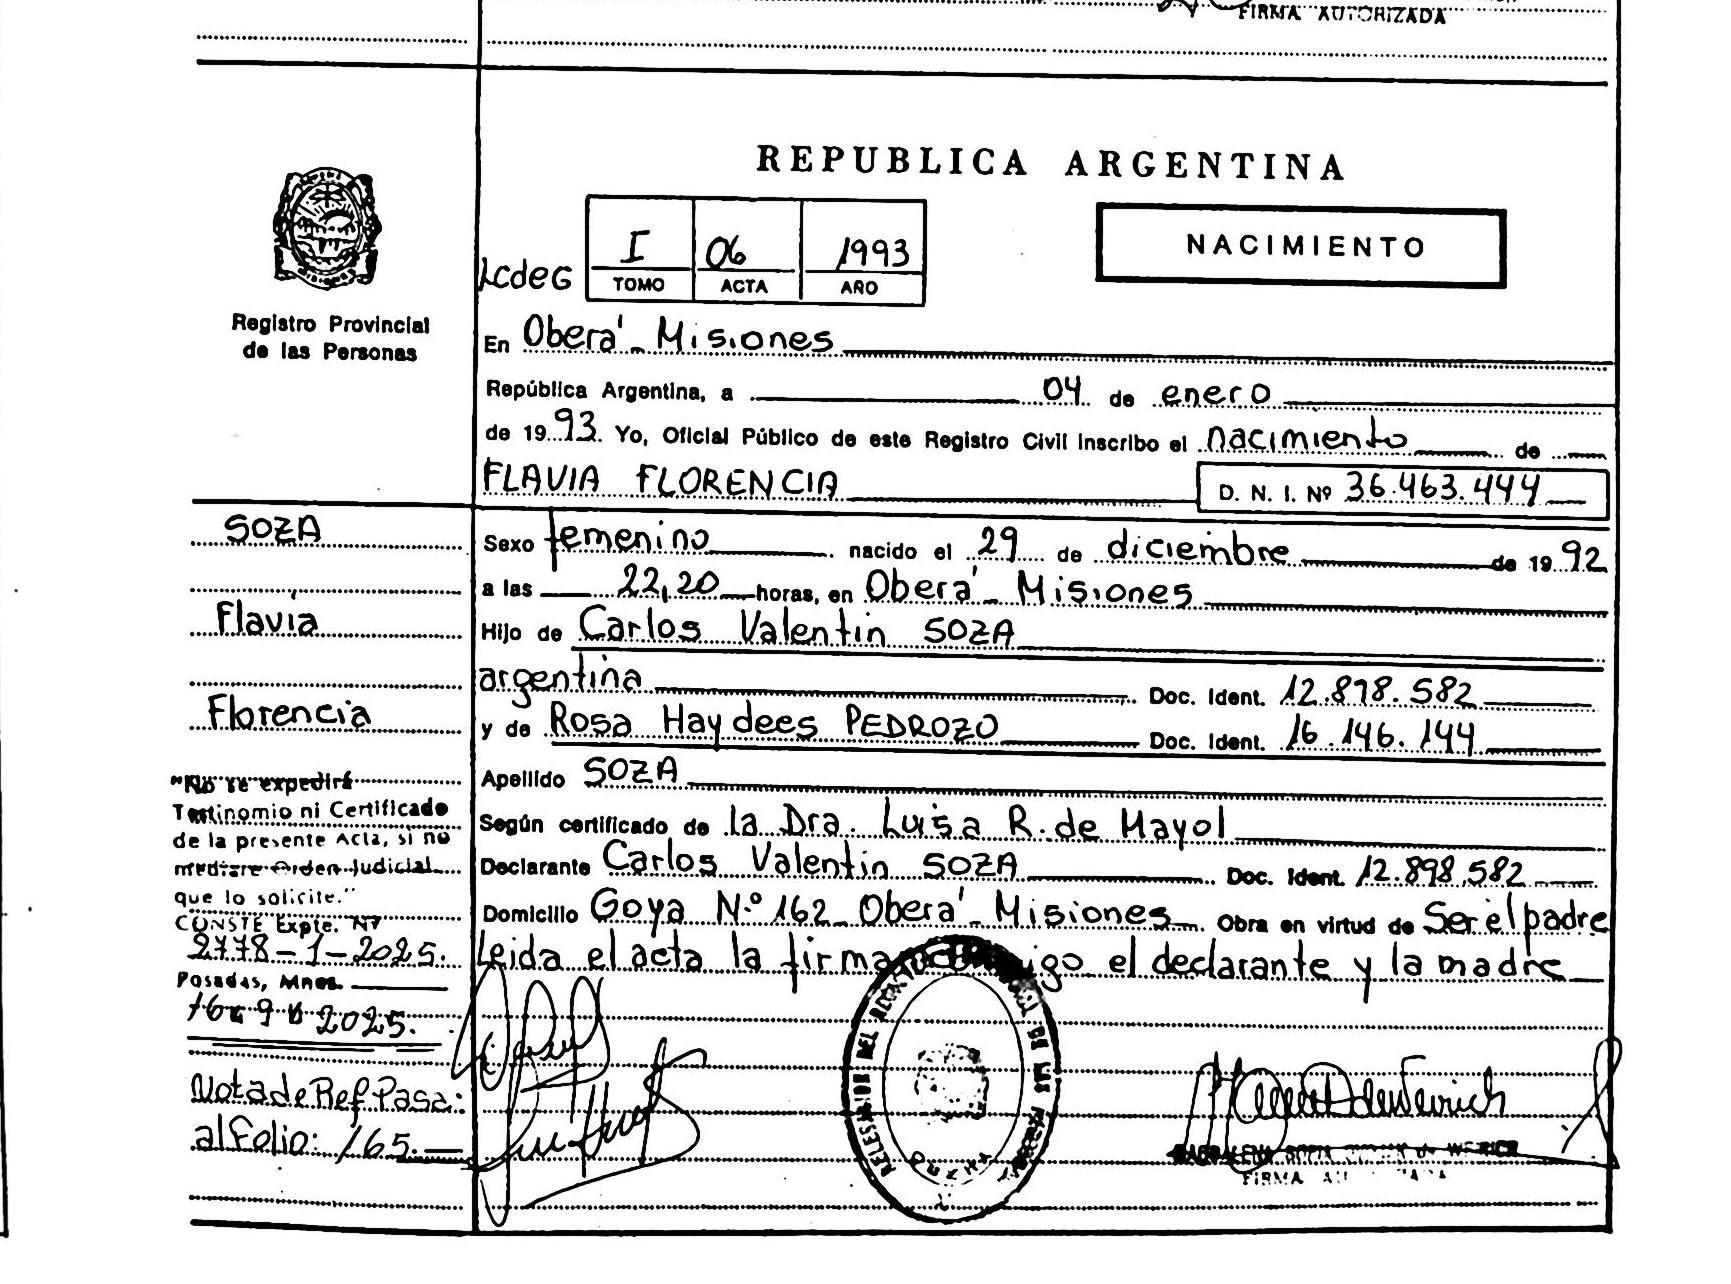 FIRMA AUTORIZADA
REPUBLICA ARGENTINA
NACIMIENTO
I 06 1993
TOMO ACTA AÑO
LcdeG
Registro Provincial
de las Personas
En Oberá - Misiones
República Argentina, a 04 de enero
de 1993. Yo, Oficial Público de este Registro Civil inscribo el nacimiento de
FLAVIA FLORENCIA D. N. I. Nº 36.463.444
Sexo femenino nacido el 29 de diciembre de 1992
a las 22,20 horas, en Oberá - Misiones
Hijo de Carlos Valentin SOZA
argentina Doc. Ident. 12.898.582
y de Rosa Haydees PEDROZO Doc. Ident. 16.146.144
Apellido SOZA
Según certificado de la Dra. Luisa R. de Mayol
Declarante Carlos Valentin SOZA Doc. Ident. 12.898.582
Domicilio Goya N.º 162 - Oberá - Misiones. Obra en virtud de Ser el padre
Leida el acta la firma el declarante y la madre
SOZA
Flavia
Florencia
"No se expedirá
Testinomio ni Certificado
de la presente Acta, si no
mediare Orden Judicial
que lo solicite."
CONSTE Expte. Nº
2778-1-2025.
Posadas, Mnes.
16 9 2025.
Nota de Ref Pasa:
al Folio: 165.
DE LAS
FIRMA